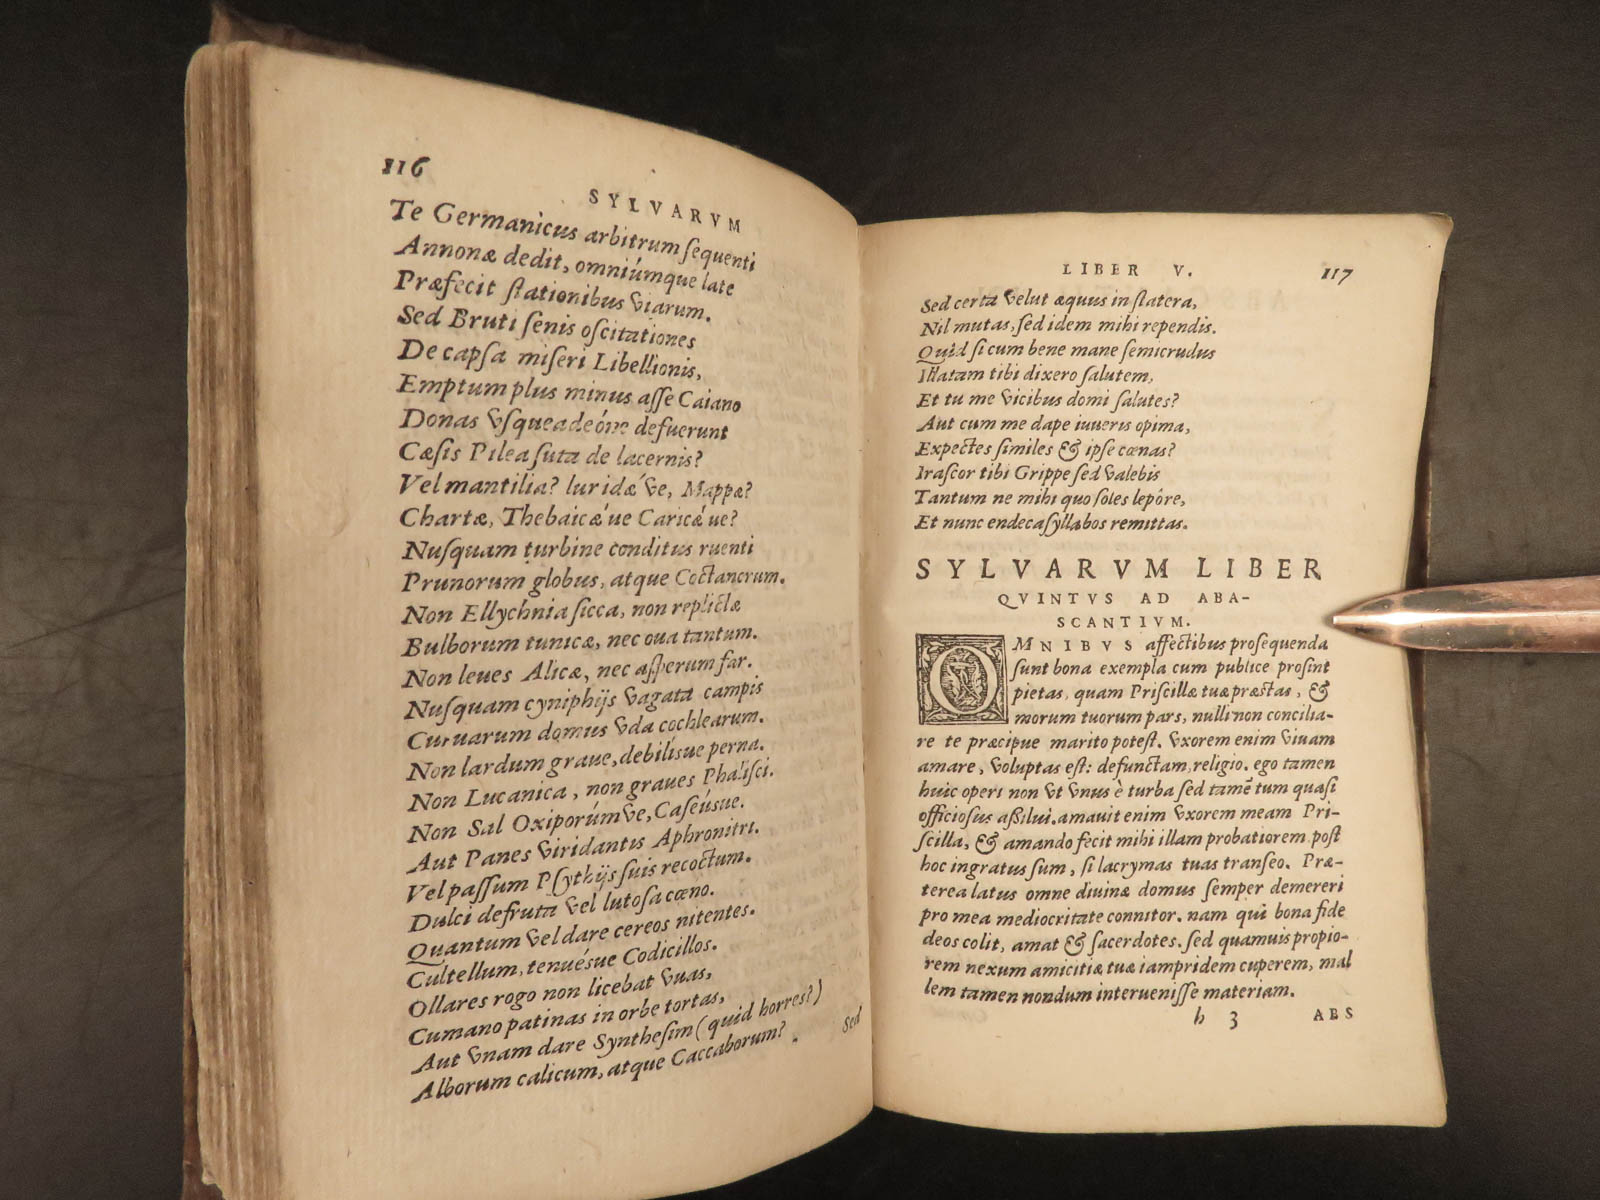 116
SYLVARVM
Te Germanicus arbitrum sequenti
Annonæ dedit, omniúmque late
Præfecit stationibus viarum.
Sed Bruti senis oscitationes
De capsa miseri Libellionis,
Emptum plus minus asse Caiano
Donas vsqueadeóne defuerunt
Cæsis Pilea suta de lacernis?
Vel mantilia? luridæ ve, Mappæ?
Chartæ, Thebaicǽue Caricǽue?
Nusquam turbine conditus ruenti
Prunorum globus, atque Coctancrum.
Non Ellychnia sicca, non replictæ
Bulborum tunicæ, nec oua tantum.
Non leues Alicæ, nec asperum far.
Nusquam cyniphijs vagata campis
Curuarum domus vda cochlearum.
Non lardum graue, debilísue perna.
Non Lucanica, non graues Phalisci.
Non Sal Oxiporúmve, Caseúsue.
Aut Panes viridantis Aphronitri.
Vel passum Psythijs suis recoctum.
Dulci defruta vel lutosa cœno.
Quantum vel dare cereos nitentes.
Cultellum, tenuésue Codicillos.
Ollares rogo non licebat vuas,
Cumano patinas in orbe tortas,
Aut vnam dare Synthesim (quid horres?)
Alborum calicum, atque Caccaborum?
Sed
LIBER V.
117
Sed certa velut æquus in statera,
Nil mutas, sed idem mihi rependis.
Quid si cum bene mane semicrudus
Illatam tibi dixero salutem,
Et tu me vicibus domi salutes?
Aut cum me dape iuueris opima,
Expectes similes & ipse cœnas?
Irascor tibi Grippe sed valebis
Tantum ne mihi quo soles lepôre,
Et nunc endecasyllabos remittas.
SYLVARVM LIBER
QVINTVS AD ABA-
SCANTIVM.
OMNIBVS affectibus prosequenda
sunt bona exempla cum publice prosint
pietas, quam Priscillæ tuæ præstas, &
morum tuorum pars, nulli non concilia-
re te præcipue marito potest. vxorem enim viuam
amare, voluptas est: defunctam, religio. ego tamen
huic operi non vt vnus è turba sed tamẽ tum quasi
officiosus assilui. amauit enim vxorem meam Pri-
scilla, & amando fecit mihi illam probatiorem post
hoc ingratus sum, si lacrymas tuas transeo. Præ-
terea latus omne diuinæ domus semper demereri
pro mea mediocritate connitor. nam qui bona fide
deos colit, amat & sacerdotes. sed quamuis propio-
rem nexum amicitiæ tuæ iampridem cuperem, mal
lem tamen nondum interuenisse materiam.
h 3
ABS